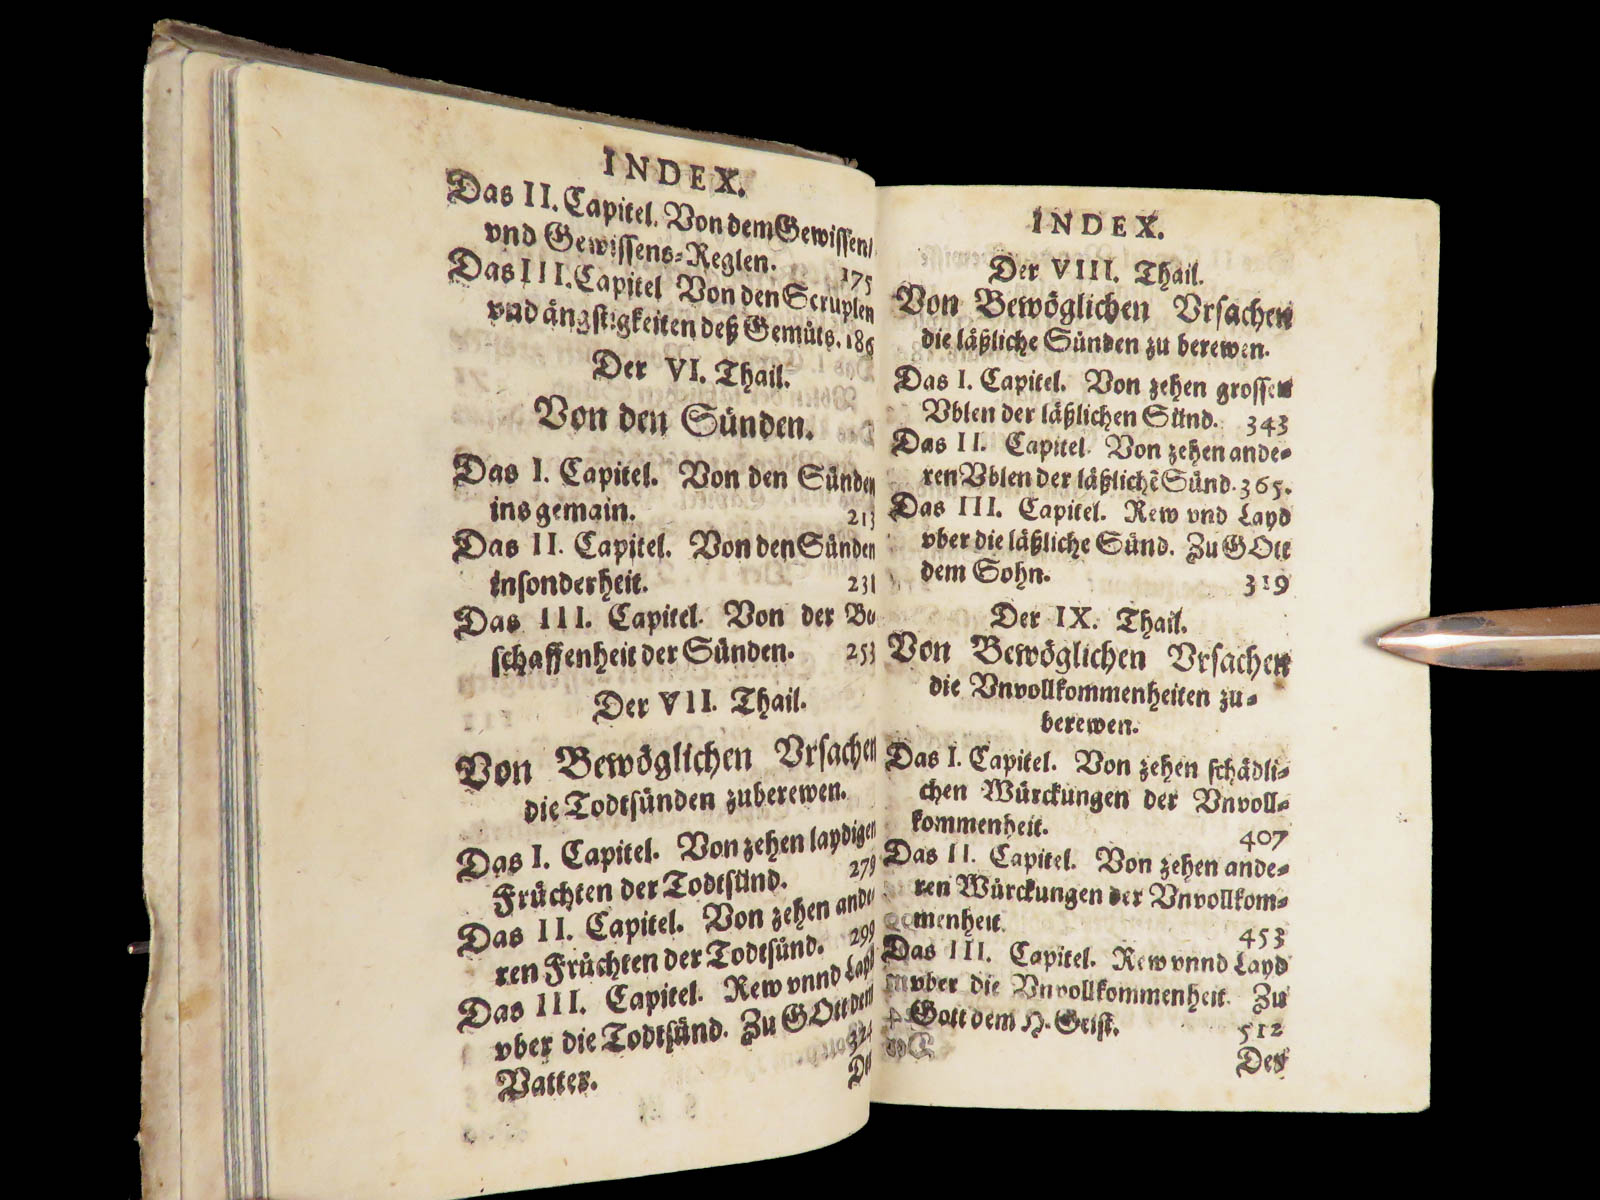 INDEX.
Das II. Capitel. Von dem Gewissen/
vnd Gewissens-Reglen. 175
Das III. Capitel Von den Scruplen
vnd ängstigkeiten deß Gemüts. 186
Der VI. Thail.
Von den Sünden.
Das I. Capitel. Von den Sünden
ins gemain. 213
Das II. Capitel. Von den Sünden
insonderheit. 231
Das III. Capitel. Von der Be
schaffenheit der Sünden. 253
Der VII. Thail.
Von Bewöglichen Vrsachen
die Todtsünden zuberewen.
Das I. Capitel. Von zehen laydigen
Früchten der Todtsünd. 279
Das II. Capitel. Von zehen ande
ren Früchten der Todtsünd. 299
Das III. Capitel. Rew vnnd Layd
vber die Todtsünd. Zu GOtt dem
Vatter.
INDEX.
Der VIII. Thail.
Von Bewöglichen Vrsachen
die läßliche Sünden zu berewen.
Das I. Capitel. Von zehen grossen
Vblen der läßlichen Sünd. 343
Das II. Capitel. Von zehen ande-
ren Vblen der läßlichē Sünd. 365.
Das III. Capitel. Rew vnd Layd
vber die läßliche Sünd. Zu GOtt
dem Sohn. 319
Der IX. Thail.
Von Bewöglichen Vrsachen
die Vnvollkommenheiten zu-
berewen.
Das I. Capitel. Von zehen schädli-
chen Würckungen der Vnvoll-
kommenheit. 407
Das II. Capitel. Von zehen ande-
ren Würckungen der Vnvollkom-
menheit. 453
Das III. Capitel. Rew vnnd Layd
vber die Vnvollkommenheit. Zu
Gott dem H. Geist. 512
Der